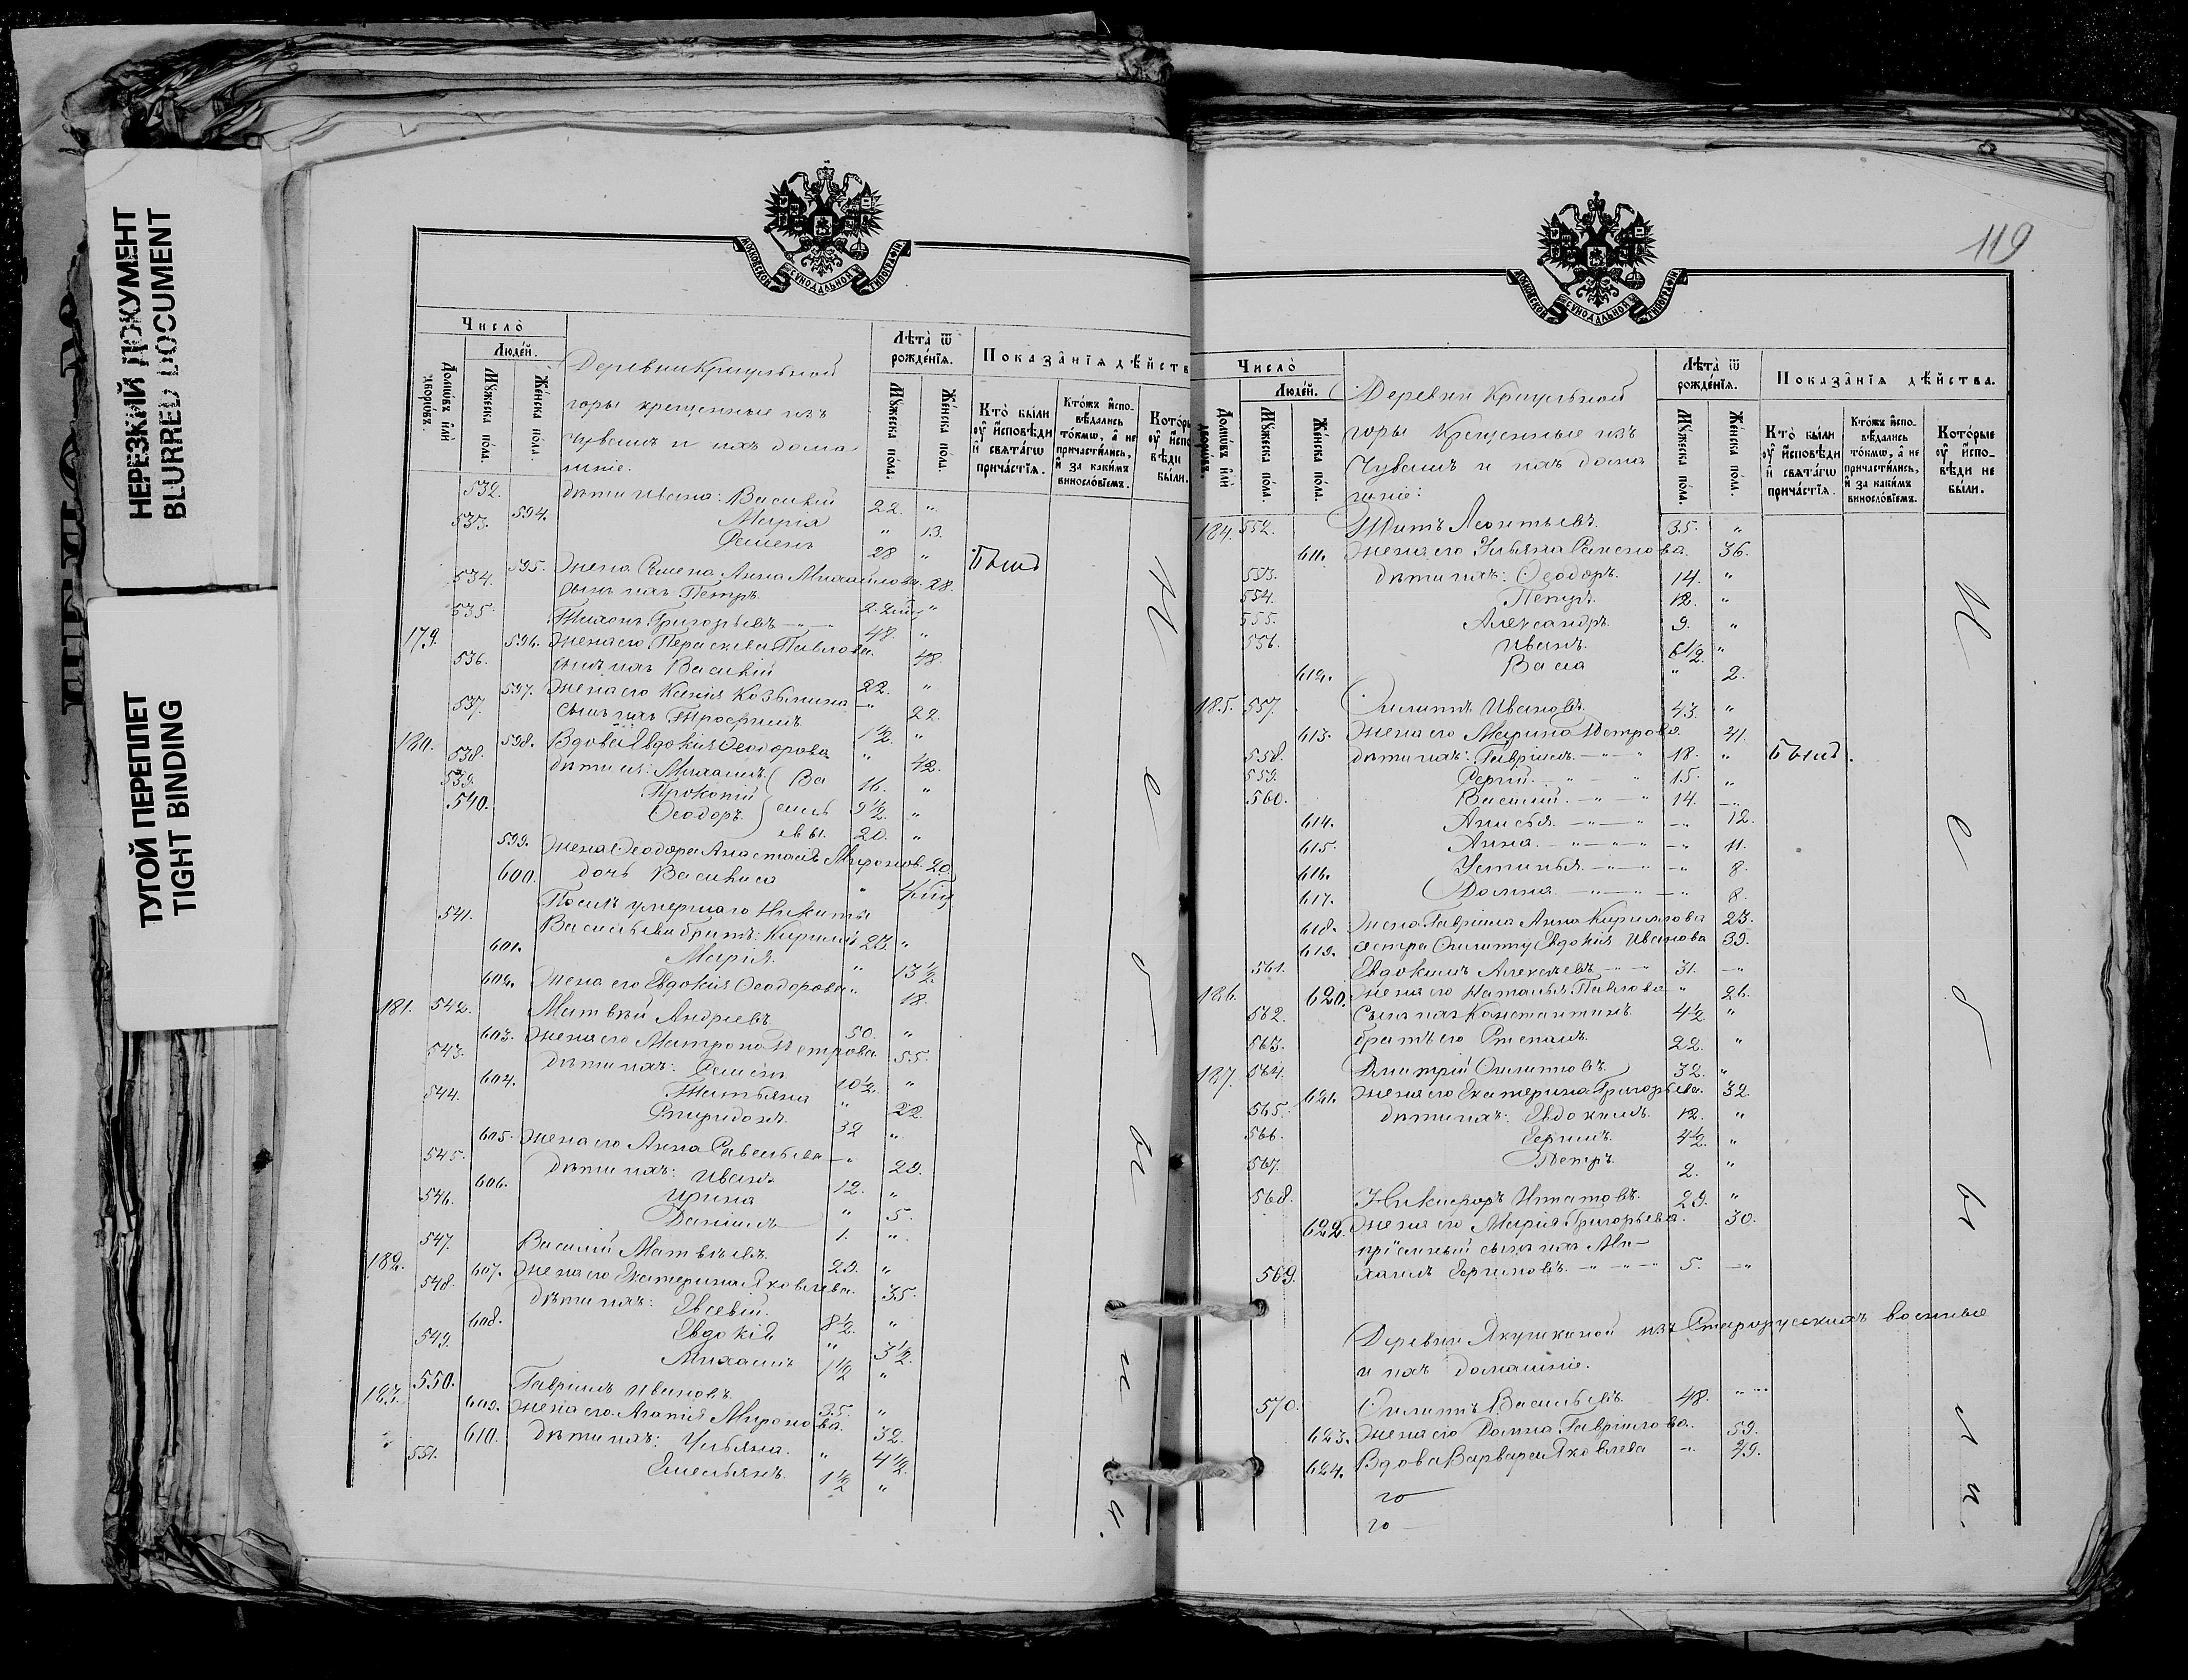 НЕРЕЗКИЙ ДОКУМЕНТ
BLURRED DOCUMENT
ТУГОЙ ПЕРЕПЛЕТ
TIGHT BINDING
МОСКОВСКОЙ СѴНОДАЛЬНОЙ ТИПОГРАФІИ
Число̀
Люде́й.
Домѡ́въ и҆лѝ дворѡ́въ.
Мꙋ́жеска по́ла.
Же́нска по́ла.
Деревни
горы крещенные изъ
Чувашъ и ихъ дома
шніе.
Лѣта̀ ѿ рожде́нїѧ.
Мꙋ́жеска по́ла.
Же́нска по́ла.
Показа̂нїѧ дѣ́йств
Кто̀ бы́ли ᲂу҆ и҆сповѣ́ди и҆ свѧта́гѡ прича́стїѧ.
Кто́жъ и҆спо-вѣ́дались то́кмѡ, а҆ не причасти́лись, и҆ за каки́мъ виносло́вїемъ.
Кото́ры ᲂу҆ и҆спо вѣ́ди бы́ли.
532. дѣти Ивана: Василій 22. "
594. Марія " 13.
533. Семенъ 28 " Были
595. Жена Семена Анна Михайлова. 28.
534. сынъ ихъ Петръ 2 "
179. 535. Тихонъ Григорьевъ 48. "
596. Жена его Параскева Павлова. 48
536. сынъ ихъ Василій 22. "
597. Жена его Ксенія Козьмина " 22.
537. сынъ ихъ Трофимъ 1 1/2. "
180. 598. Вдова Евдокія Ѳеодорова " 42.
538. дѣти ея: Михаилъ Ва 16. "
539. Прокопій силь 9 1/2. "
540. Ѳеодоръ евы. 20. "
599. Жена Ѳеодора Анастасія Миронов. 20.
600. дочь Василиса "
Послѣ умершаго Никиты
541. Васильева братъ: Кириллъ 23. "
601. Марія. " 13 1/2.
602. Жена его Евдокія Ѳеодорова " 18.
181. 542. Матвѣй Андреевъ 50. "
603. Жена его Матрона Петрова. 55.
543. дѣти ихъ: Семенъ 10 1/2. "
604. Татьяна " 22.
544. Спиридонъ. 32 "
605. Жена его Анна Савельева " 29.
545. дѣти ихъ: Иванъ 12. "
606. Ирина " 5.
546. Даніилъ 1. "
182. 547. Василій Матвѣевъ 29. "
607. Жена его Екатерина Яковлева. 35.
548. дѣти ихъ: Евсевій. 8 1/2. "
608. Евдокія " 3 1/2.
549. Михаилъ 1 1/2 "
183. 550. Гавріилъ Ивановъ 35. "
609. Жена его Агапія Миронова. 32.
610. дѣти ихъ: Ульяна. " 4 1/2.
551. Емельянъ. 1 1/2 "
Не были.
119
МОСКОВСКОЙ СѴНОДАЛЬНОЙ ТИПОГРАФІИ
Число̀
Люде́й.
Домѡ́въ и҆лѝ дворѡ́въ.
Мꙋ́жеска по́ла.
Же́нска по́ла.
Деревни
горы Крещенные изъ
Чувашъ и ихъ дома
шніе:
Лѣта̀ ѿ рожде́нїѧ.
Мꙋ́жеска по́ла.
Же́нска по́ла.
Показа̂нїѧ дѣ́йства.
Кто̀ бы́ли ᲂу҆ и҆сповѣ́ди и҆ свѧта́гѡ прича́стїѧ.
Кто́жъ и҆спо-вѣ́дались то́кмѡ, а҆ не причасти́лись, и҆ за каки́мъ виносло́вїемъ.
Кото́рые ᲂу҆ и҆спо-вѣ́ди не бы́ли.
184. 552. Титъ Леонтьевъ. 35. "
611. Жена его Ульяна Семенова. 36.
553. дѣти ихъ: Ѳеодоръ. 14. "
554. Петръ. 12. "
555. Александръ. 9. "
556. Иванъ. 6 1/2. "
612. Васса " 2.
185. 557. Филиппъ Ивановъ. 43. "
613. Жена его Марина Петрова. 41.
558. дѣти ихъ: Гавріилъ 18. " Были.
559. Сергій 15. "
560. Василій 14. "
614. Анисья " 12.
615. Анна " 11.
616. Устинья " 8.
617. Домна " 8.
618. Жена Гавріила Анна Кириллова 23.
619. сестра Филиппу Евдокія Иванова 39.
186. 561. Евдокимъ Алексѣевъ 31. "
620. Жена его Наталья Павлова " 26.
562. Сынъ ихъ Константинъ 4 1/2 "
563. братъ его Степанъ. 22. "
187. 564. Дмитрій Филипповъ 32. "
621. Жена его Екатерина Григорьева. 32.
565. дѣти ихъ: Евдокимъ. 12. "
566. 4 1/2. "
567. Петръ. 2. "
568. Никифоръ Игнатовъ. 29. "
622. Жена его Марія Григорьева. 30.
пріемный сынъ ихъ Ми-
569. хаилъ 5. "
Деревни Якушкиной изъ Старорусскихъ военные
и ихъ домашніе.
570. Филиппъ Васильевъ. 48. "
623. Жена его Домна Гавріилова. 59.
624. Вдова Варвара Яковлева " 49.
Не были.